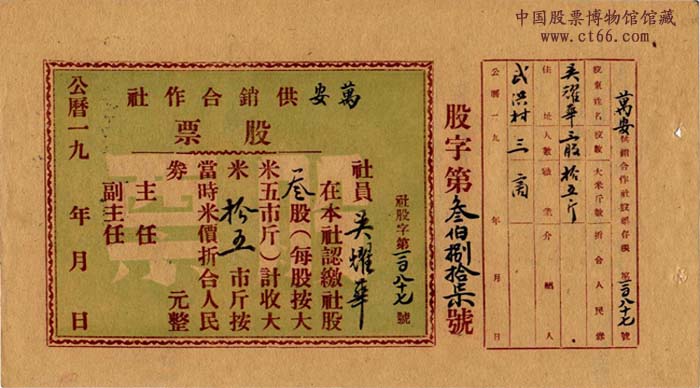 中国股票博物馆馆藏
www.ct66.com
萬安供銷合作社
股票
社股字第一百八十七號
社員吴耀華
在本社認繳社股
叁股(每股按大
米五市斤)計收大
米拾五市斤按
當時米價折合人民
劵 元整
主任
副主任
公曆一九 年 月 日
股字第叁佰捌拾柒號
萬安供銷合作社股票存根 第一百八十七號
股東姓名 股數 大米斤數 折合人民劵
吴耀華 三股 拾五斤
住址 人數 職業 介紹人
武洪村 三 商
公曆一九 年 月 日